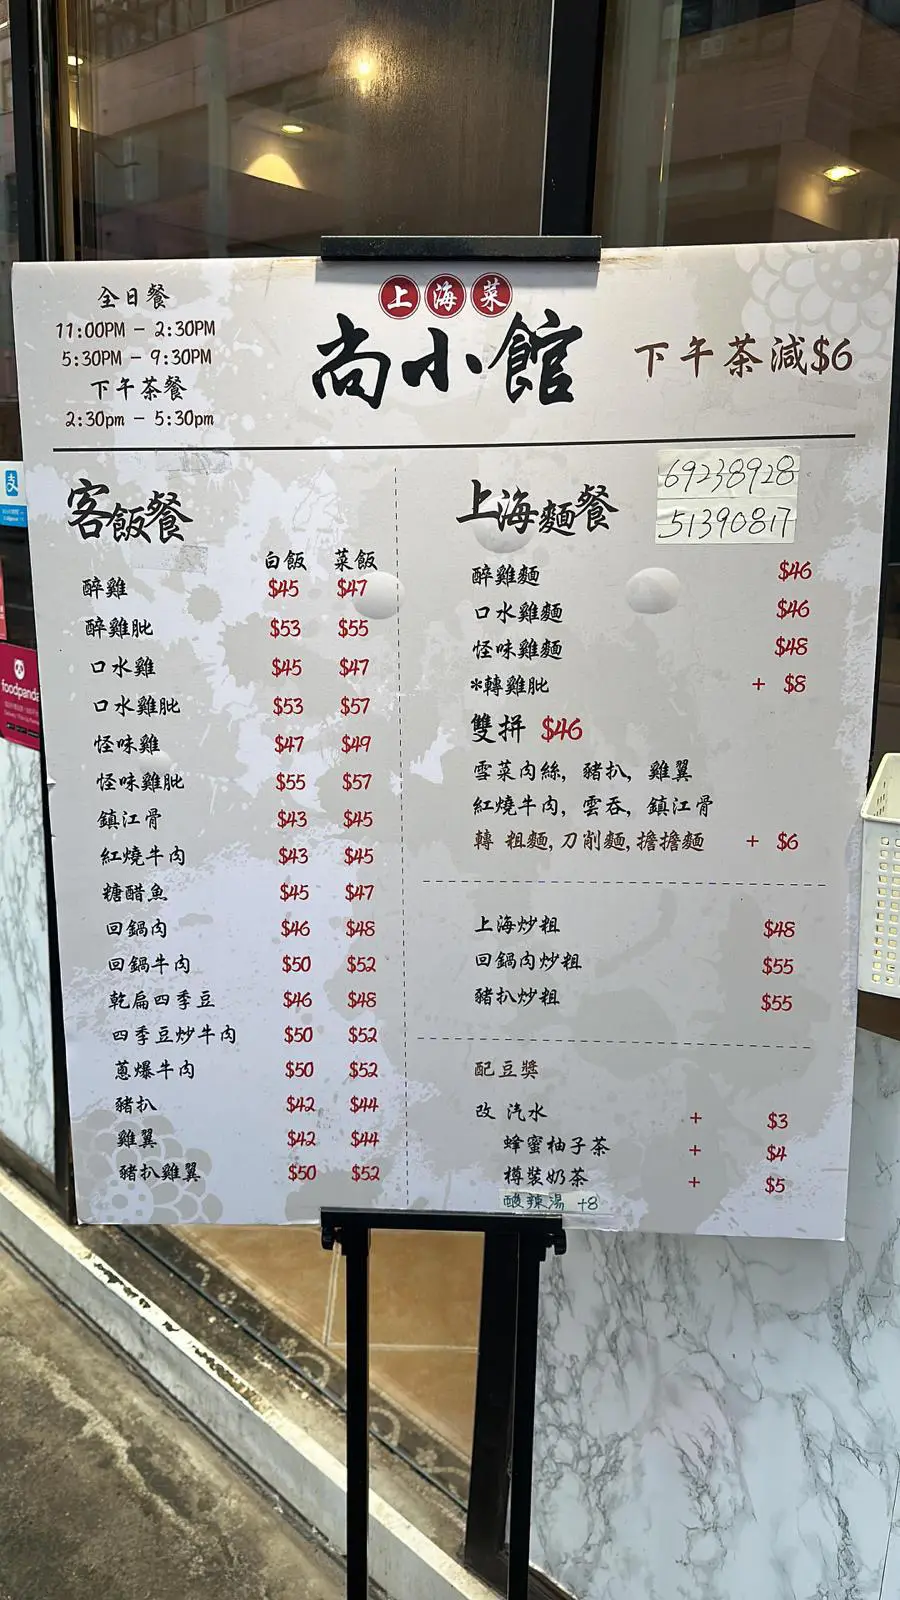 全日餐
11:00PM - 2:30PM
5:30PM - 9:30PM
下午茶餐
2:30pm - 5:30pm
上海菜
尚小館
下午茶減$6
客飯餐
白飯 菜飯
醉雞 $45 $47
醉雞肶 $53 $55
口水雞 $45 $47
口水雞肶 $53 $57
怪味雞 $47 $49
怪味雞肶 $55 $57
鎮江骨 $43 $45
紅燒牛肉 $43 $45
糖醋魚 $45 $47
回鍋肉 $46 $48
回鍋牛肉 $50 $52
乾扁四季豆 $46 $48
四季豆炒牛肉 $50 $52
蔥爆牛肉 $50 $52
豬扒 $42 $44
雞翼 $42 $44
豬扒雞翼 $50 $52
上海麵餐
69238928
51390817
醉雞麵 $46
口水雞麵 $46
怪味雞麵 $48
*轉雞肶 + $8
雙拼 $46
雪菜肉絲, 豬扒, 雞翼
紅燒牛肉, 雲吞, 鎮江骨
轉 粗麵, 刀削麵, 擔擔麵 + $6
上海炒粗 $48
回鍋肉炒粗 $55
豬扒炒粗 $55
配豆獎
改 汽水 + $3
蜂蜜柚子茶 + $4
樽裝奶茶 + $5
酸辣湯 +8
支
foodpanda